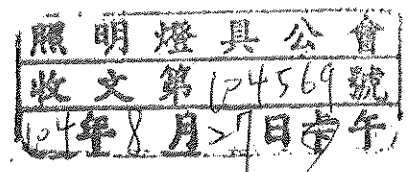 照明燈具公會
收文第104569號
104年8月27日午